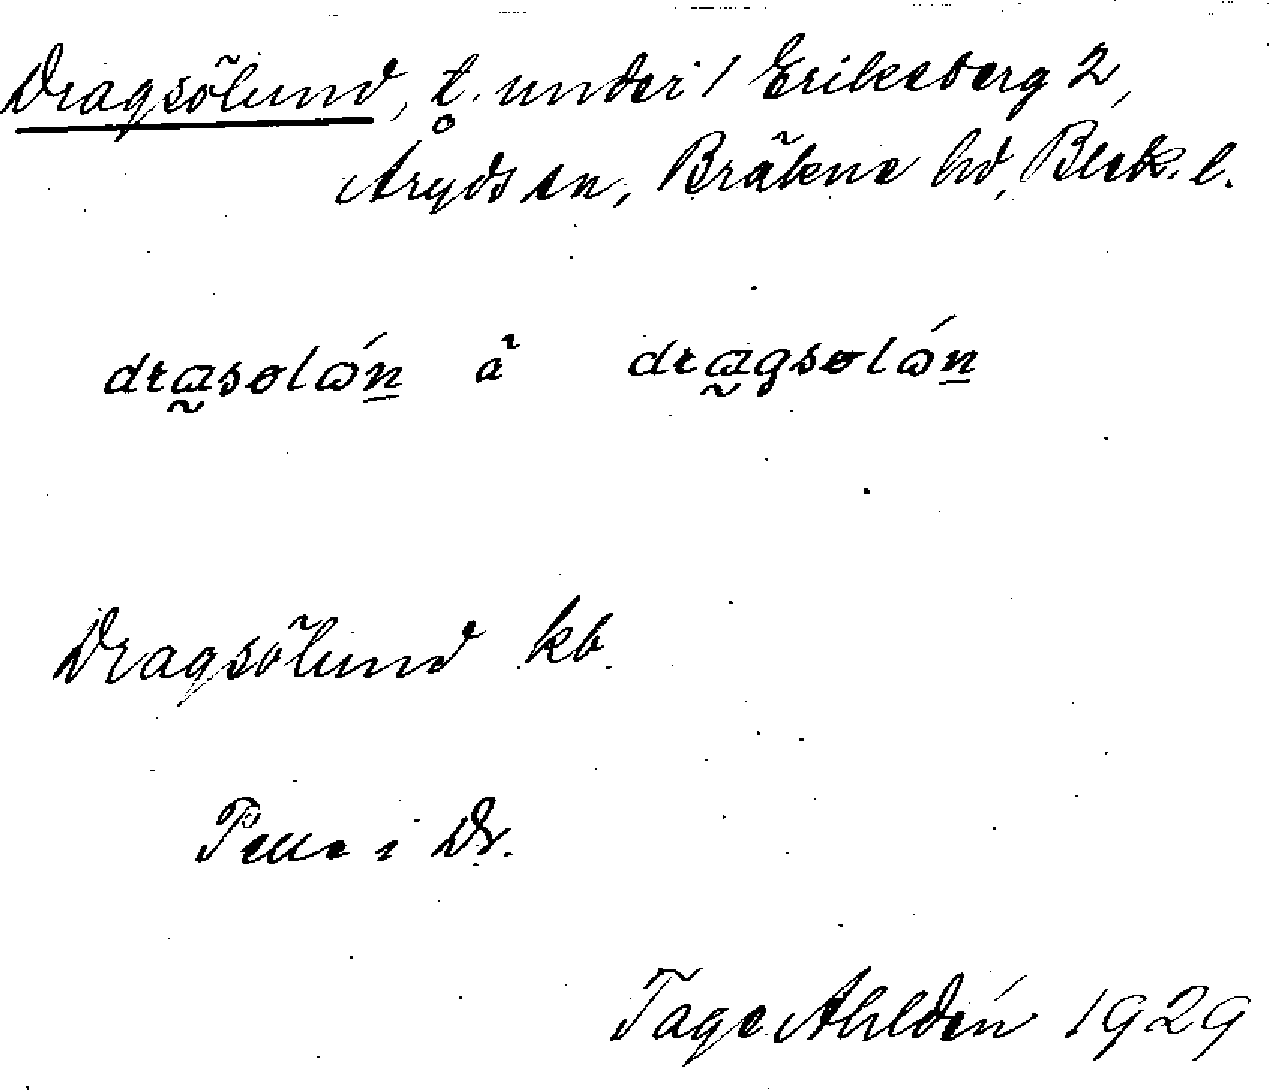 Dragsölund, t. under 1 Eriksberg 2,
Åryds sn, Bräkne hd, Blek. l.
drasolón à dragsolón
Dragsölund kb.
Pelle i Dr.
Tage Ahldén 1929